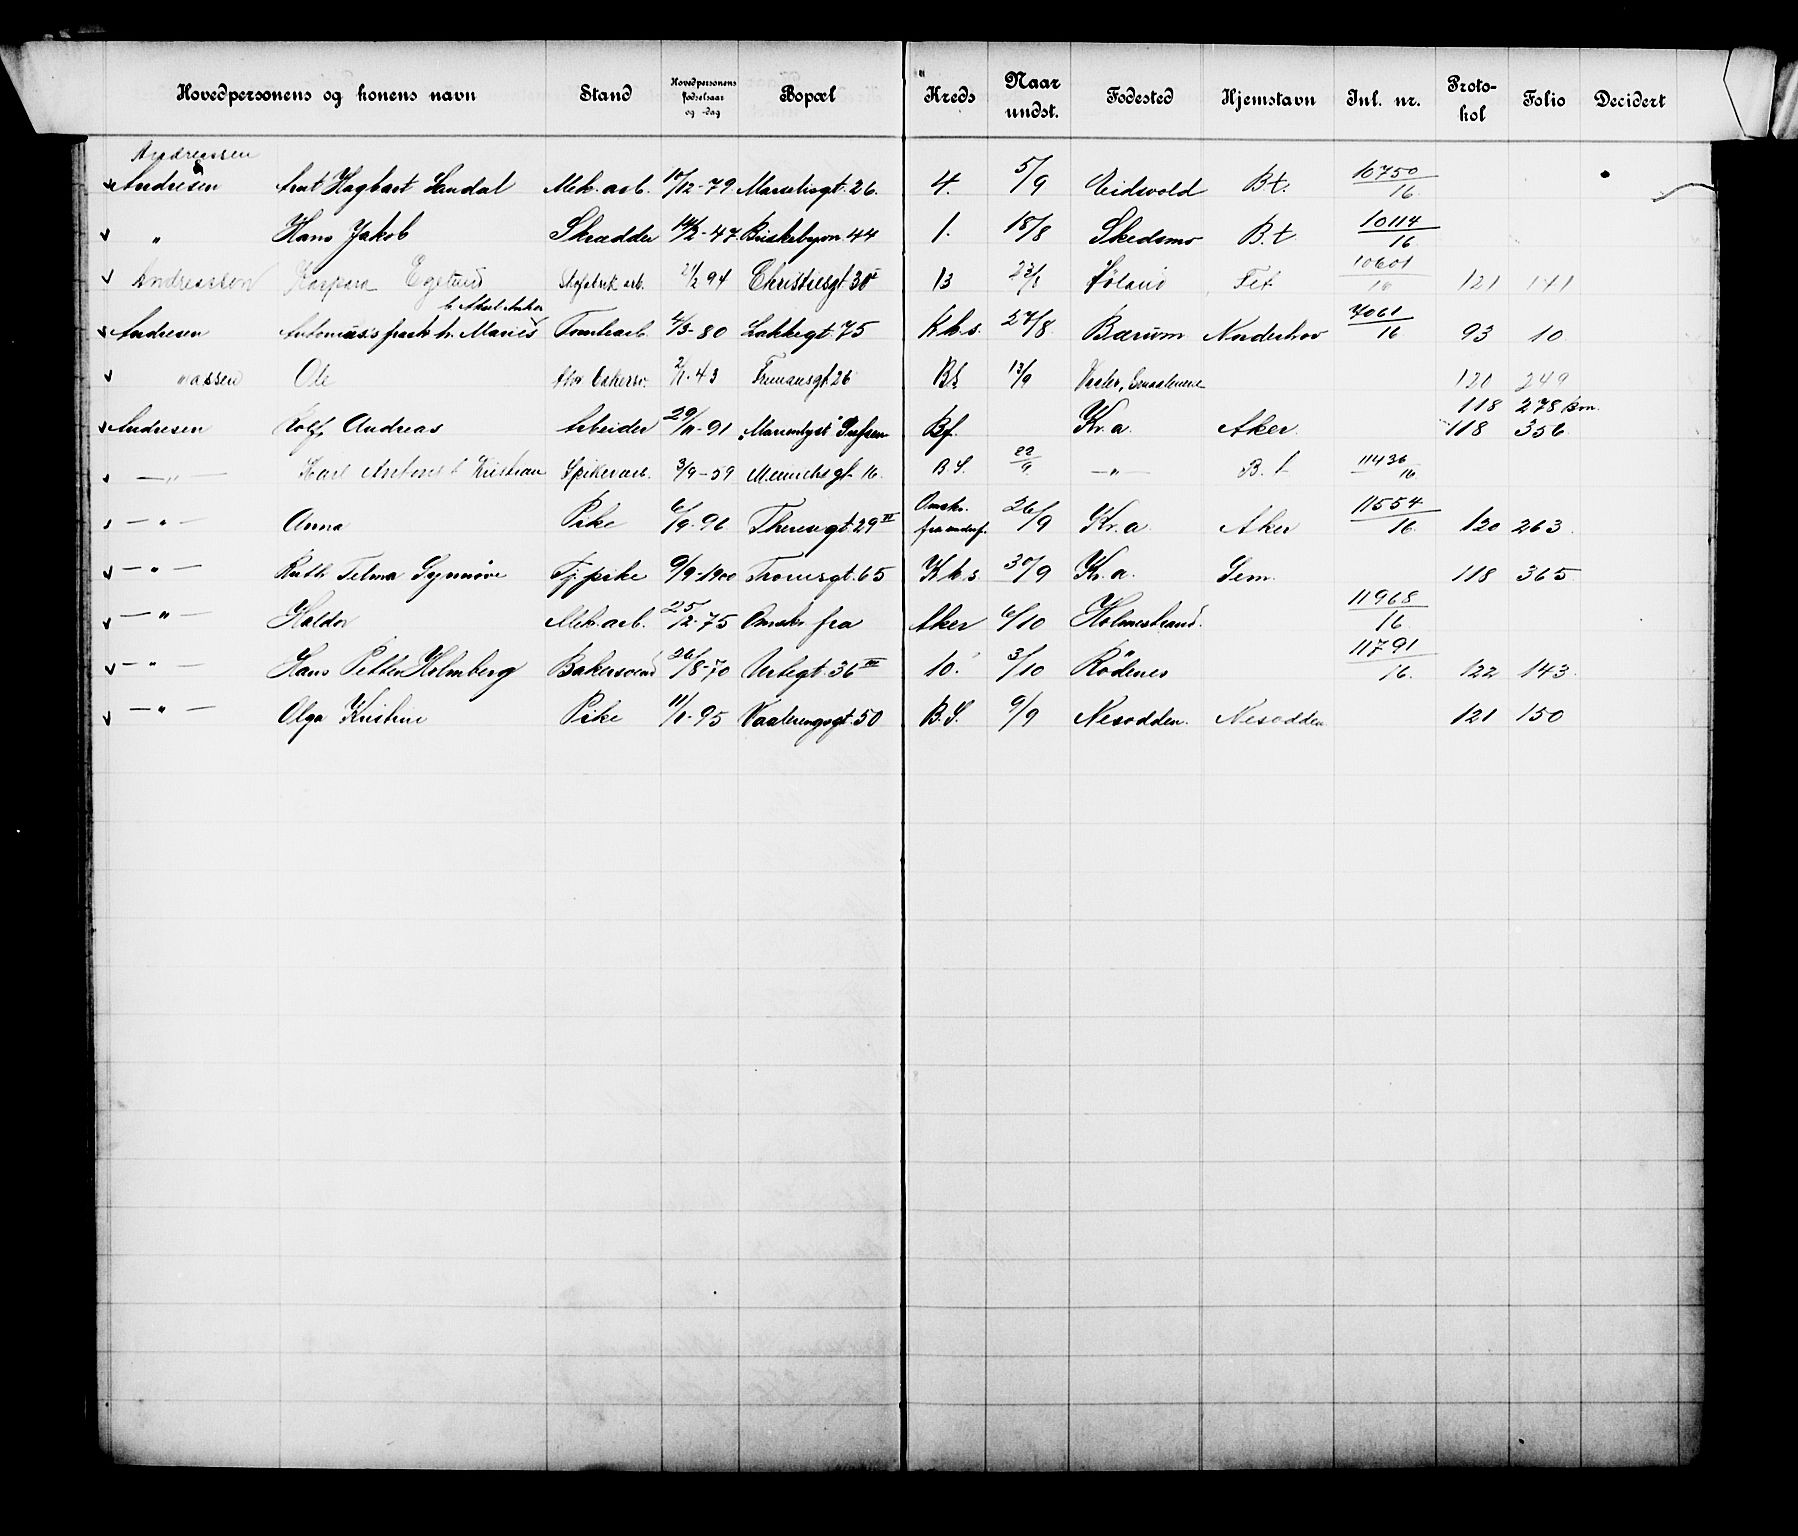 Hovedpersonens og konens navn Stand Hovedpersonens fødselsaar og -dag Bopæl Kreds Naar undst. Fødested Hjemstavn Inl. nr. Protokol Folio Decidert
Andreassen
Andresen Arnt Hagbart Sandal Mek. arb. 10/12-79 Marselisgt. 26. 4. 5/9 Eidsvold B.t. 10750/16
" Hans Jakob Skrædder 14/2-47 Briskebyvn 44 1. 18/8 Skedsmo B.t. 10114/16
Andreasson Kaspara Egelund Skofabrik arb. 21/2 94 Christiesgt 30 I 13 23/8 Høland Fet 10601/16 121 141
Andresen Antonius's frask. h. Maries Tomtearb. 2/3-80 Lakkegt 75 K.k.s. 27/8 Bærum Norderhov 7061/16 93 10
" assen Ole 2/1-43 Fremansgt 26 Bf. 13/9 Vaaler, Smaalenene 121 249
118 278 km.
Andresen Rolf Andreas Arbeider 29/11-91 Marienlyst Bf. Kr.a. Aker. 118 356
—"— Karl Anton Kristian Spikerarb. 3/9-59 Munchsgt. 16. B.S. 22/9 —"— B.t 11436/16
—"— Anna Pike 6/9-96 Theresgt. 29 IV Omskr. fra underf. 26/9 Kr.a. Aker 11554/16. 120 263.
—"— Ruth Telma Synnøve Tj.pike 9/9-1900 Tromsgt. 65 K.k.s. 30/9 Kr.a. Sem. 118 365.
—"— Haldor Mek. arb. 25/2-75 Omskr. fra Aker 6/10 Holmestrand. 11968/16.
—"— Hans Petter Holmberg Bakersvend 26/8-70 Urtegt. 36 III 10. 3/10 Rødenes 11791/16. 122 143.
—"— Olga Kristine Pike 11/1-95 Vaalerengsgt. 50 B.S. 9/9 Nesodden. Nesodden 121 150